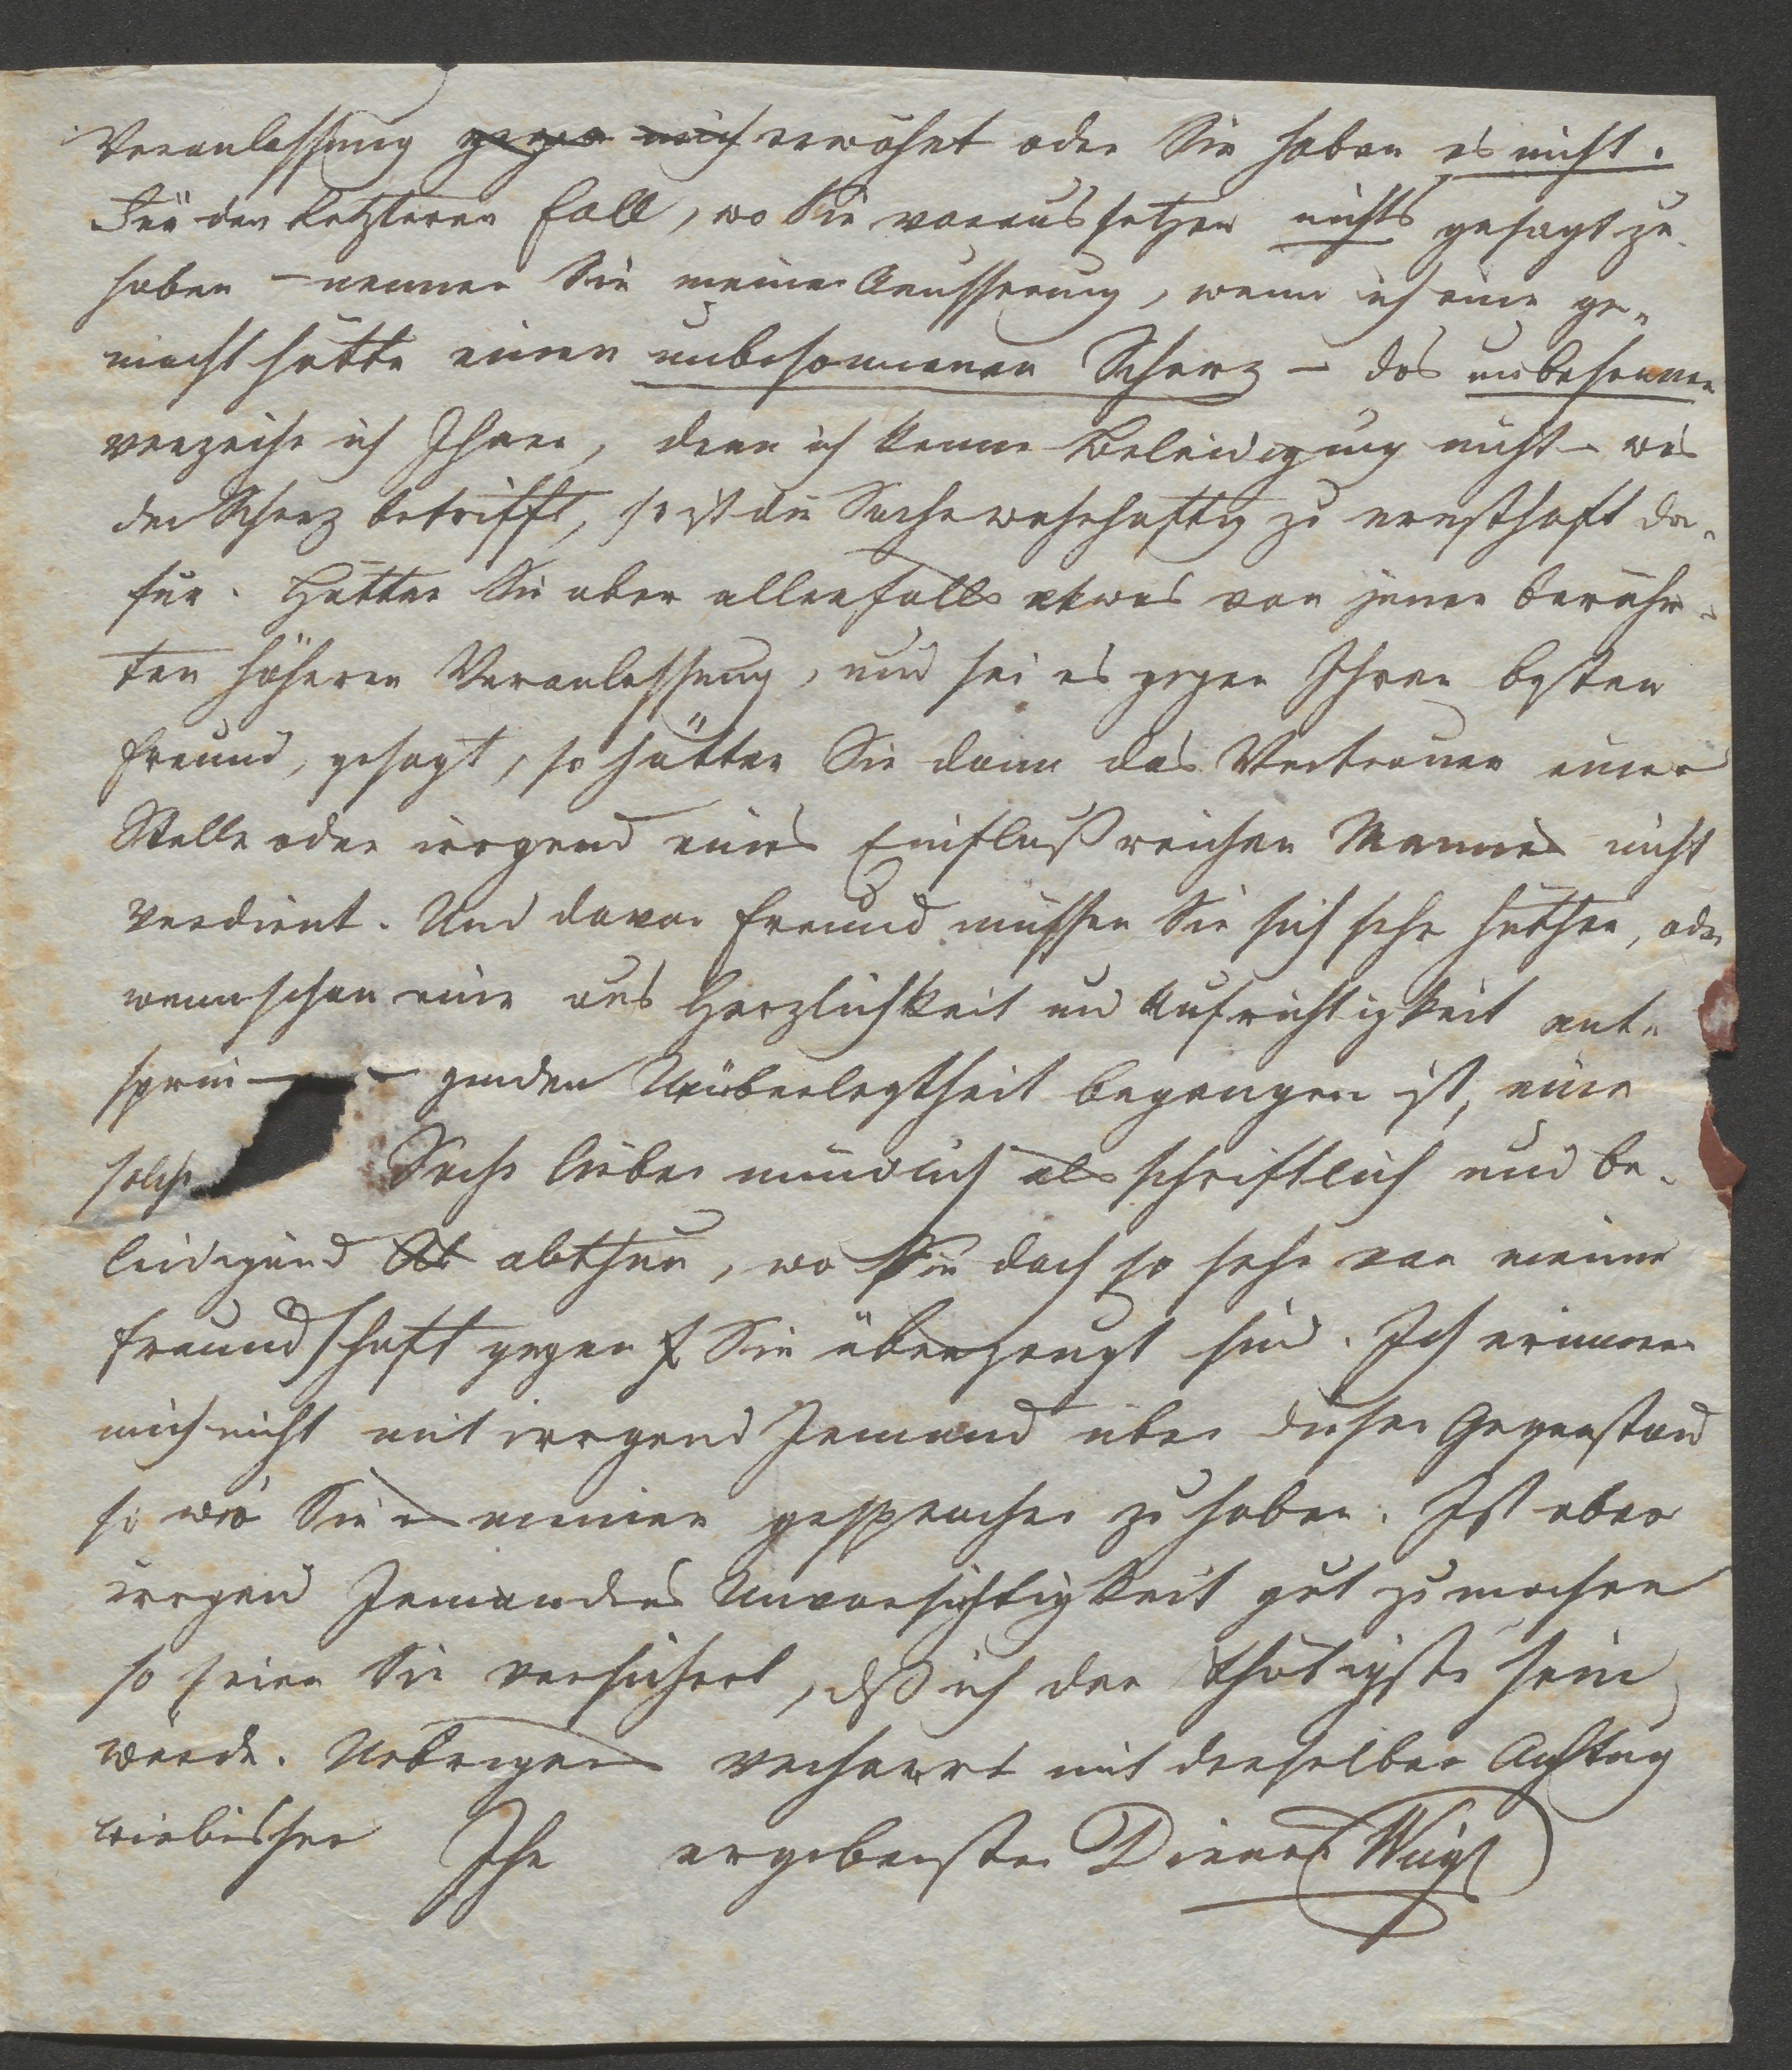 Veranlassung gegen mich erwähnt oder Sie haben es nicht.
Für den letzteren Fall, wo Sie voraussetzen nichts gesagt zu
haben – nennen Sie meine Aeusserung, wenn ich eine ge-
macht hätte einen unbesonnenen Scherz – das unbesonnen
verzeihe ich Ihnen, denn ich kenne Beleidigung nicht – was
den Scherz betrifft, so ist die Sache wahrhaftig zu ernsthaft da-
für. Hätten Sie aber allenfalls etwas von jener berühr-
ten höheren Veranlassung, und sei es gegen Ihren besten
Freund, gesagt, so hätten Sie dann das Vertrauen einer
Stelle oder irgend eines Einflußreichen Mannes nicht
verdient. Und davor Freund müssen Sie sich sehr hüthen, oder
wenn schon eine aus Herzlichkeit und Aufrichtigkeit ent-
sprin – genden Unüberlegtheit begangen ist, eine
solche Sache lieber mündlich als schriftlich und be-
leidigend abthun, wo Sie doch so sehr von meiner
Freundschaft gegen Sie überzeugt sind. Ich erinnere
mich nicht mit irgend Jemand über diesen Gegenstand
so wie Sie es meinen gesprochen zu haben. Ist aber
irgend Jemandes Unvorsichtigkeit gut zu machen
so seien Sie versichert, dß ich der thätigste sein
werde. Uebrigens verharrt mit derselben Achtung
wie bisher Ihr ergebenster Diener